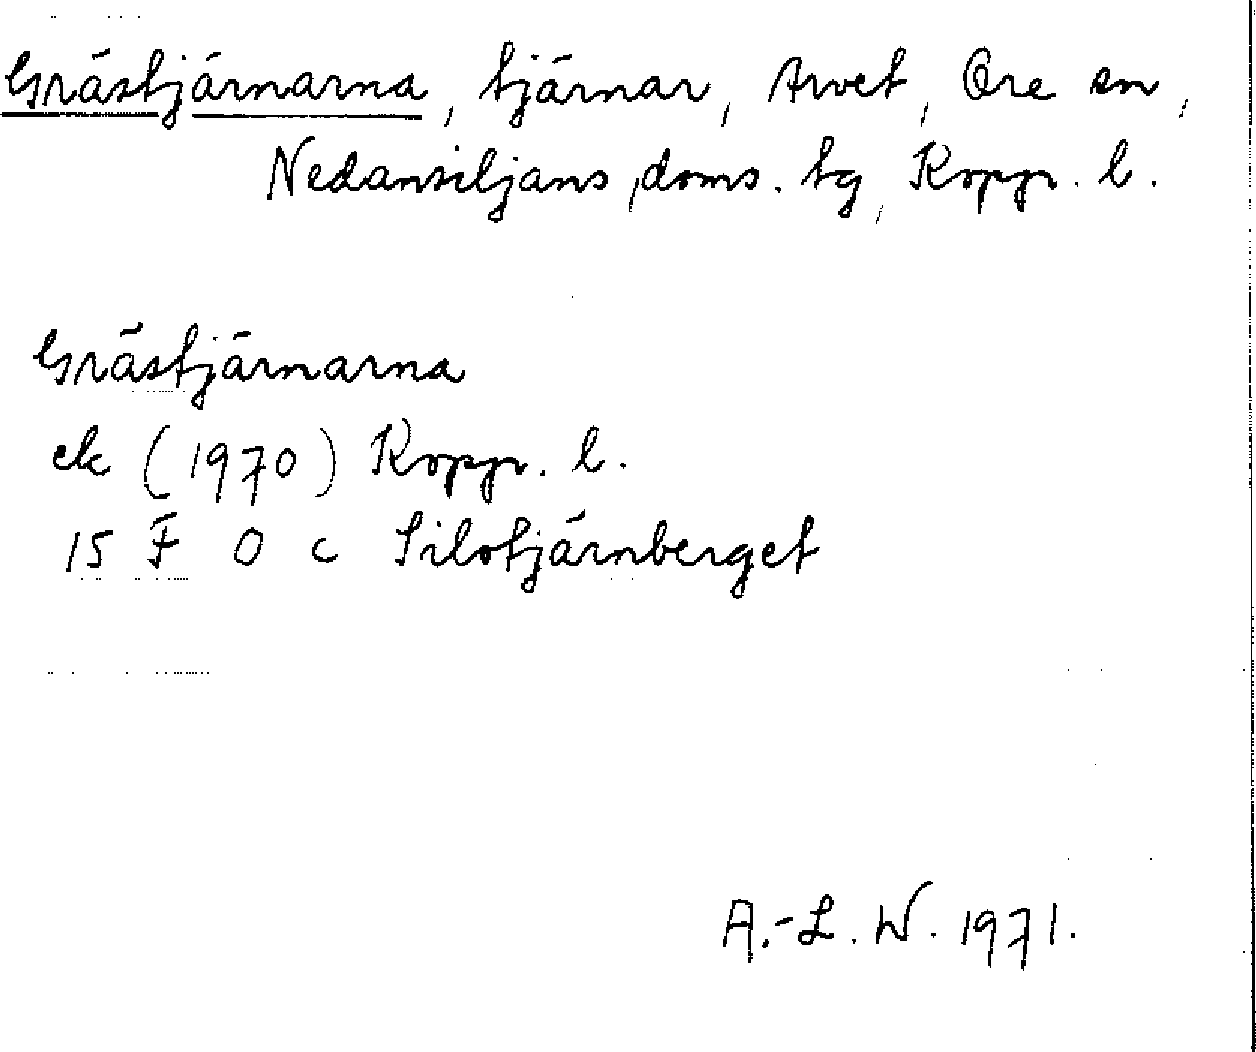 Grästjärnarna, tjärnar, Arvet, Ore sn,
Nedansiljans, doms. tg, Koppr. l.
Grästjärnarna
ek (1970) Koppr. l.
15 F 0 c Silotjärnberget
A.-L. W. 1971.